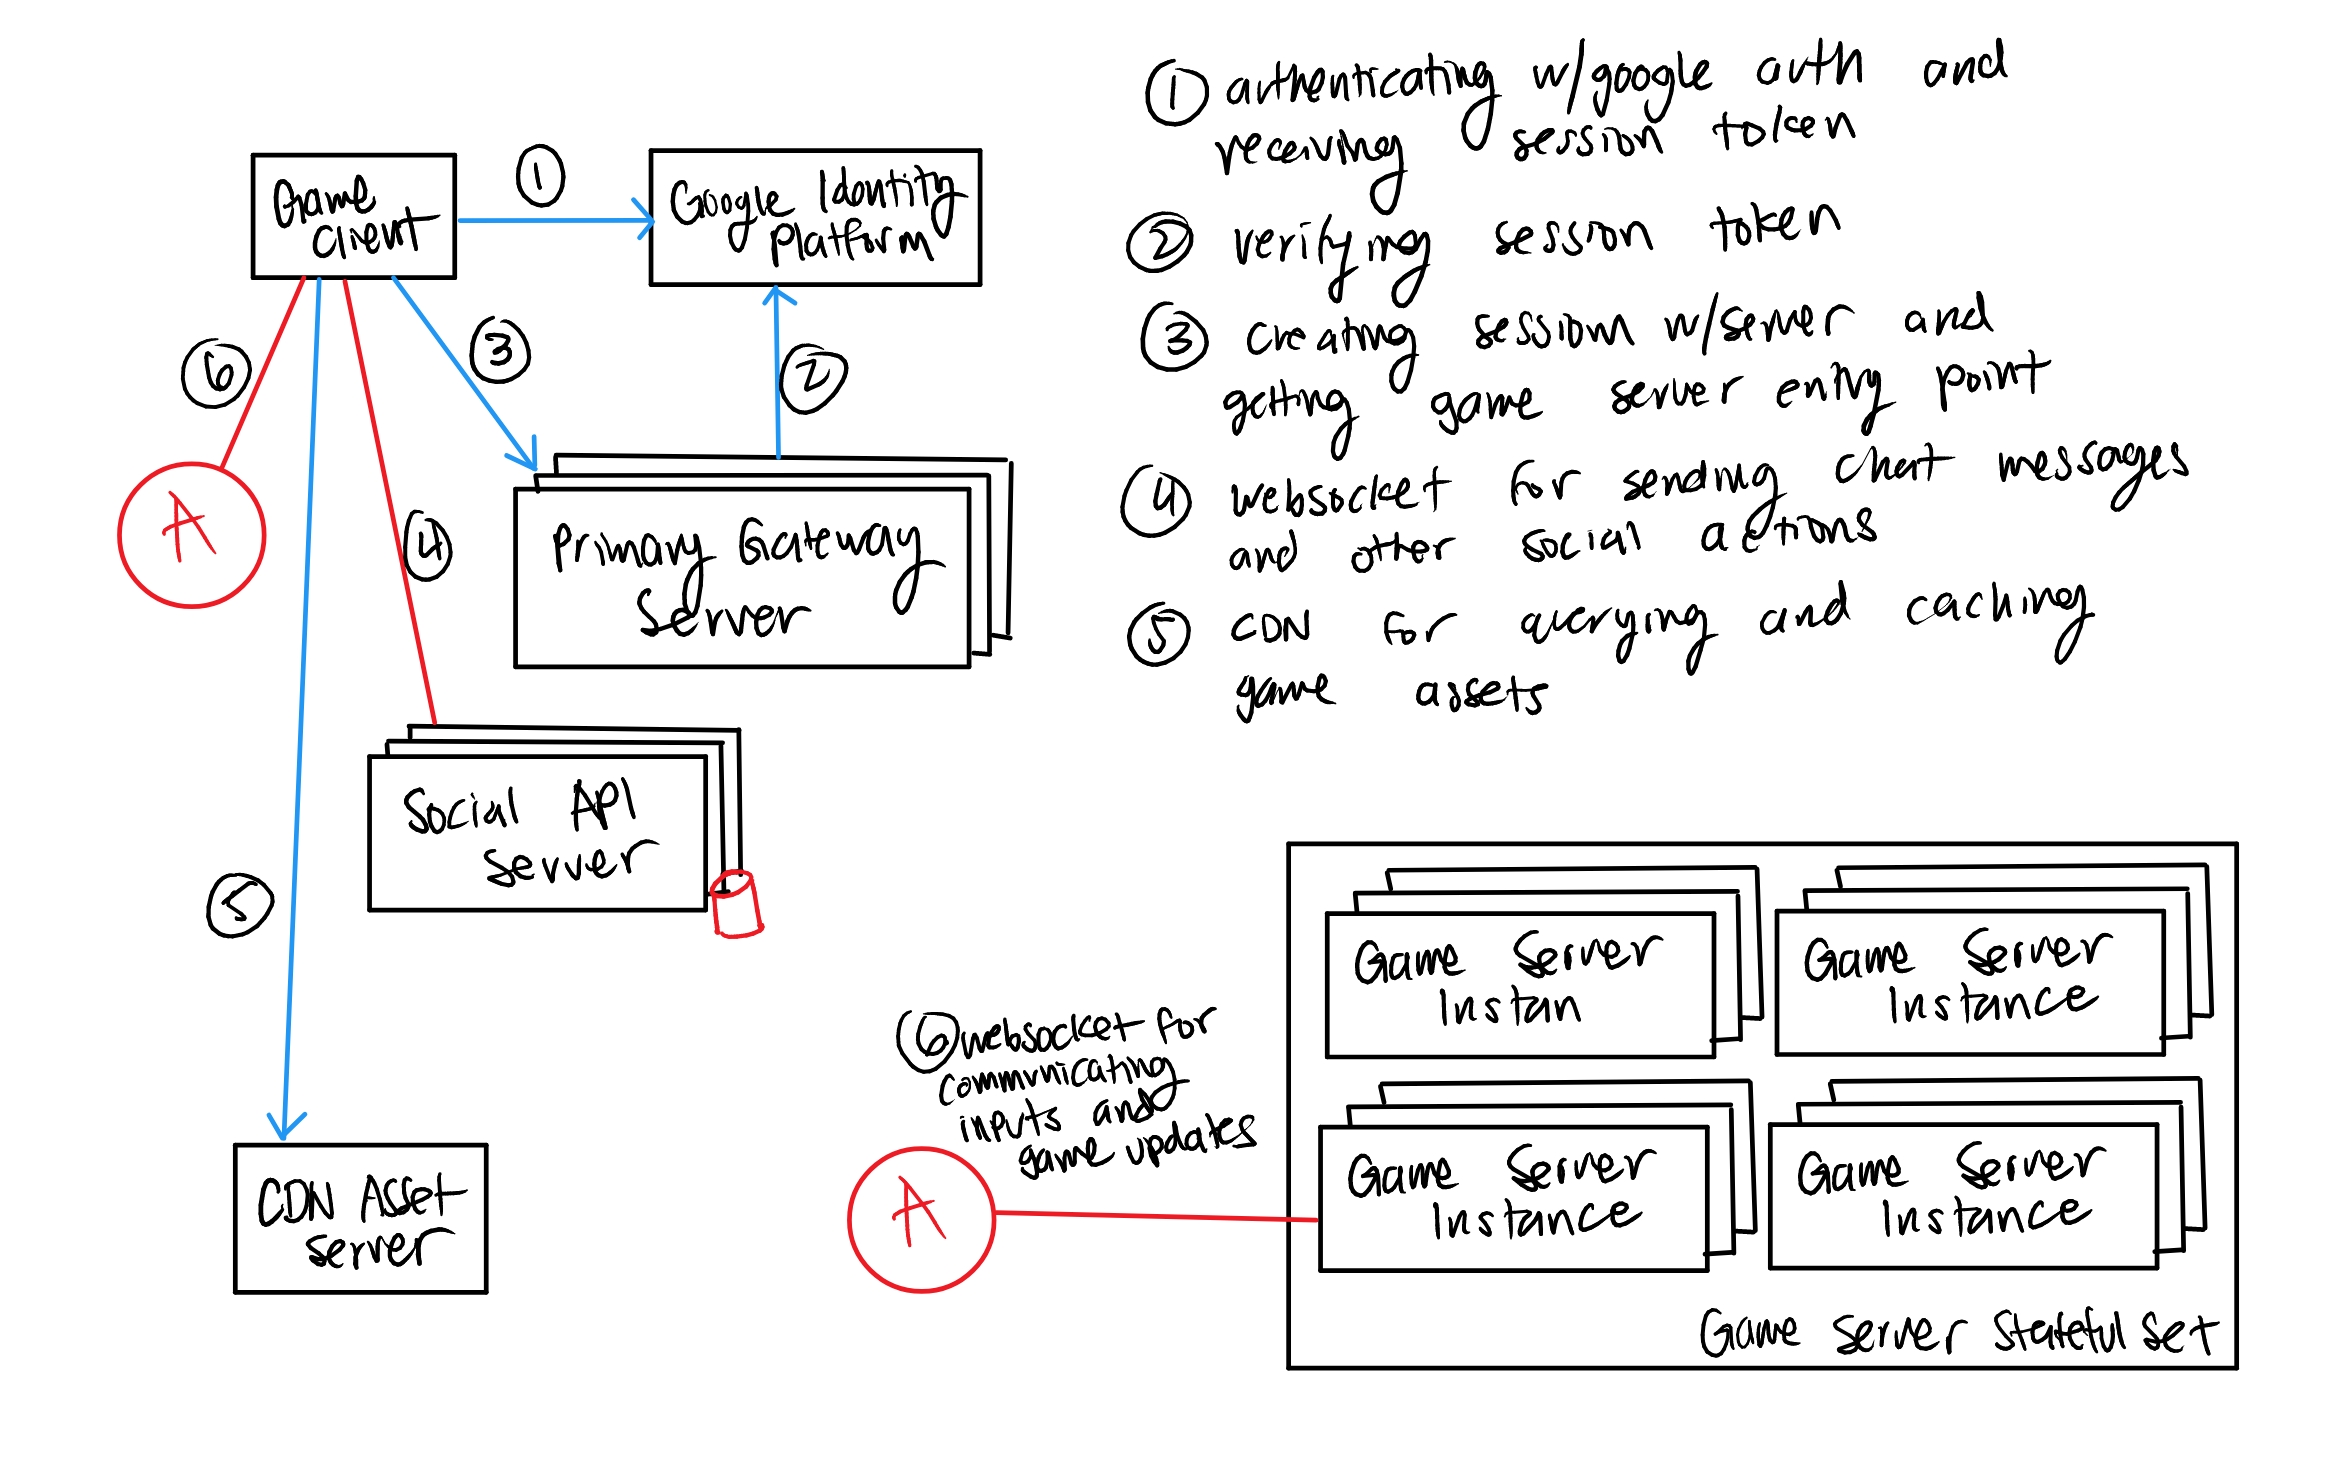 Game
Client
①
Google Identity
Platform
⑥
③
②
A
④
Primary Gateway
Server
Social API
Server
⑤
CDN Asset
Server
① authenticating w/google auth and
receiving session token
② verifying session token
③ creating session w/server and
getting game server entry point
④ websocket for sending chat messages
and other social actions
⑤ CDN for querying and caching
game assets
⑥ websocket for
communicating
inputs and
game updates
A
Game Server
Instan
Game Server
Instance
Game Server
Instance
Game Server
Instance
Game Server Stateful Set